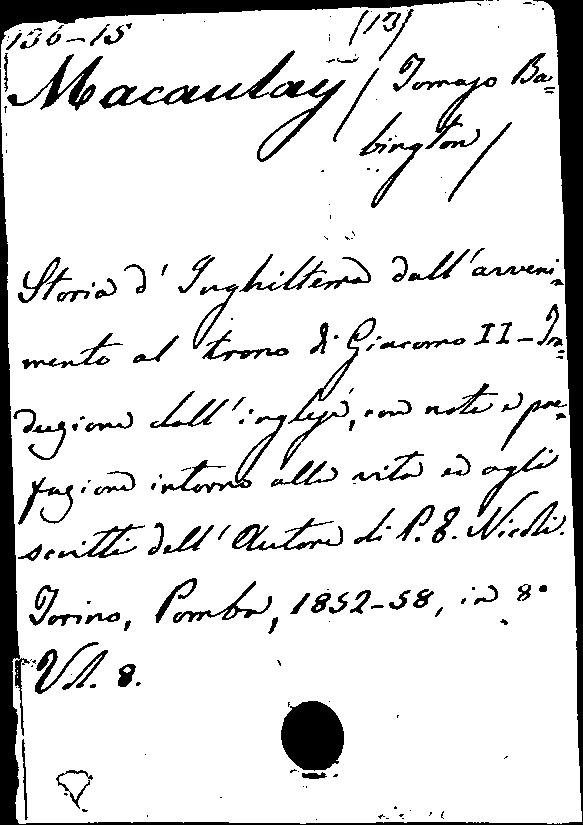 136-15 (13)
Macaulay / Tomaso Ba=
bington /
Storia d' Inghilterra dall'avveni=
mento al trono di Giacomo II - Tra=
duzione dall'inglese, con note e pre=
fazione intorno alla vita ed agli
scritti dell'Autore di P. E. Nicoli.
Torino, Pomba, 1852-58, in 8°
Vol. 8.